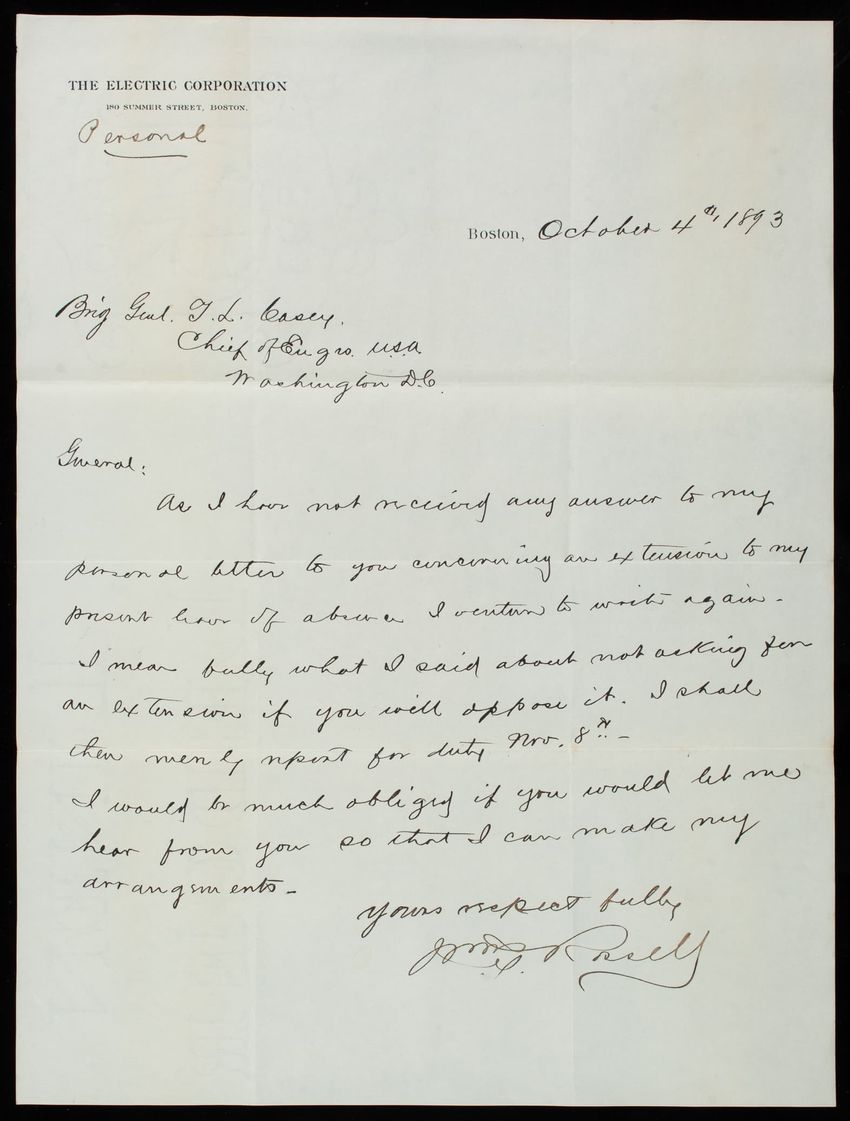 THE ELECTRIC CORPORATION
180 SUMMER STREET, BOSTON.
Personal
Boston, October 4th, 1893
Brig Genl. T. L. Casey.
Chief of Engrs. U.S.A.
Washington D.C.
General:
As I have not received any answer to my
personal letter to you concerning an extension to my
present leave of absence I venture to write again -
I mean fully what I said about not asking for
an extension if you will oppose it. I shall
then merely report for duty Nov. 8th -
I would be much obliged if you would let me
hear from you so that I can make my
arrangements -
Yours respectfully
Wm. T. Rossell